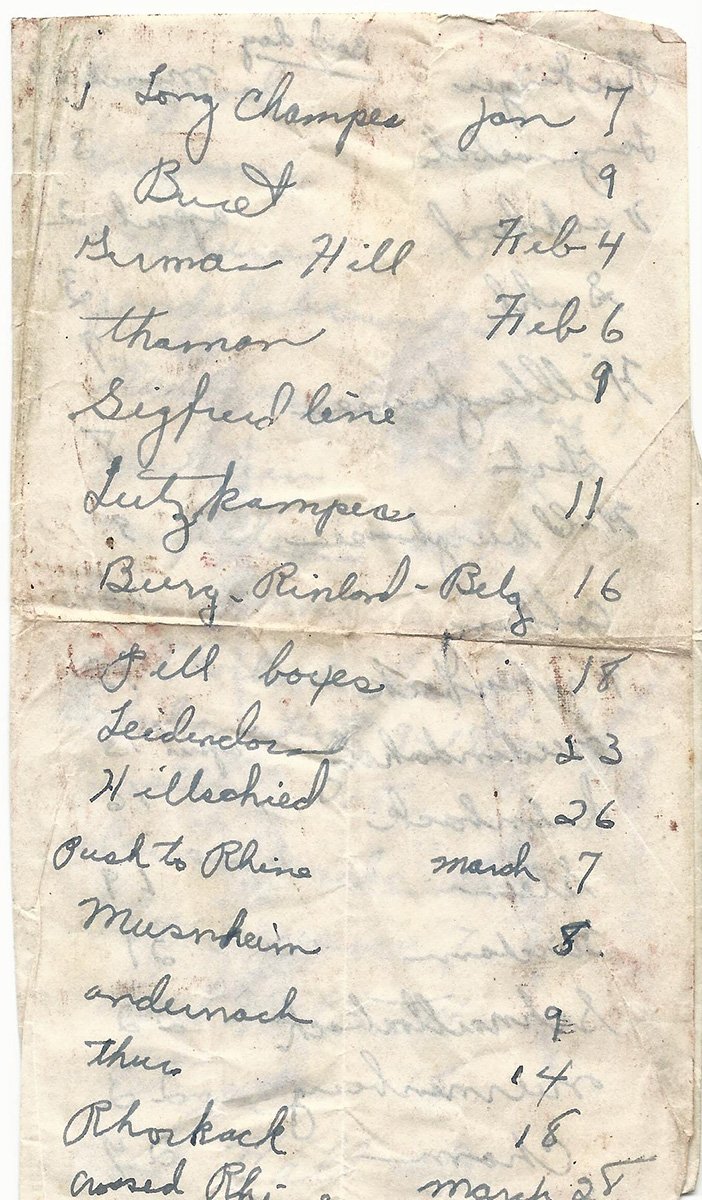 1 Long Champes Jan 7
Buret 9
German Hill Feb 4
thaman Feb 6
Sigfried line 9
Lutzkampen 11
Burg - Rinland - Belg 16
Pill boxes 18
Leidendorn 23
Hillschied 26
Push to Rhine march 7
Musnheim 8
andernach 9
thur 14
Rhorback 18
crossed Rhine march 25